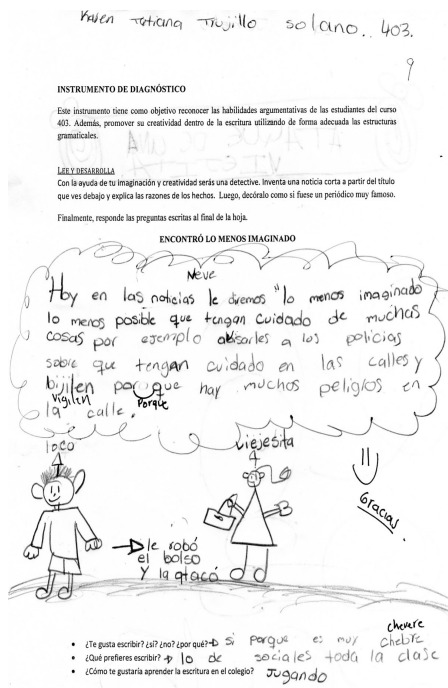 Karen Tatiana Trujillo solano.. 403.
9
INSTRUMENTO DE DIAGNÓSTICO
Este instrumento tiene como objetivo reconocer las habilidades argumentativas de las estudiantes del curso
403. Además, promover su creatividad dentro de la escritura utilizando de forma adecuada las estructuras
gramaticales.
LEE Y DESARROLLA
Con la ayuda de tu imaginación y creatividad serás una detective. Inventa una noticia corta a partir del título
que ves debajo y explica las razones de los hechos. Luego, decóralo como si fuese un periódico muy famoso.
Finalmente, responde las preguntas escritas al final de la hoja.
ENCONTRÓ LO MENOS IMAGINADO
Neve
Hoy en las noticias le diremos "lo menos imaginado
lo menos posible que tengan cuidado de muchas
cosas por esemplo abisarles a los policias
sobre que tengan cuidado en las calles y
bijilen por que hay muchos peligros en
Vigilen Porque
la calle.
loco
viejesita
Gracias.
le robó
el bolso
y la atacó
chevere
• ¿Te gusta escribir? ¿sí? ¿no? ¿por qué? si porque es muy chebre
• ¿Qué prefieres escribir? lo de sociales toda la clase
• ¿Cómo te gustaría aprender la escritura en el colegio? Jugando